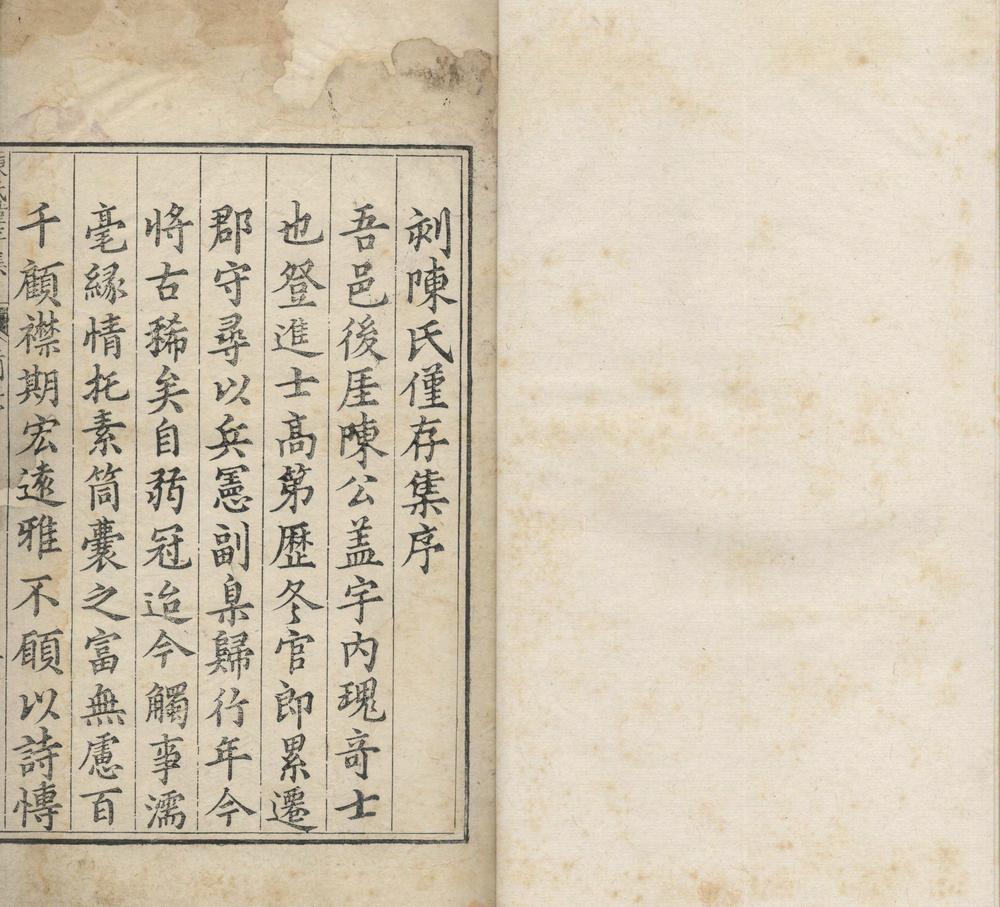 刻陳氏僅存集序
吾邑後厓陳公蓋宇內瑰奇士
也登進士高第歷冬官郎累遷
郡守尋以兵憲副臬歸行年今
將古稀矣自弱冠迨今觸事濡
毫緣情托素筒囊之富無慮百
千顧襟期宏遠雅不願以詩傳